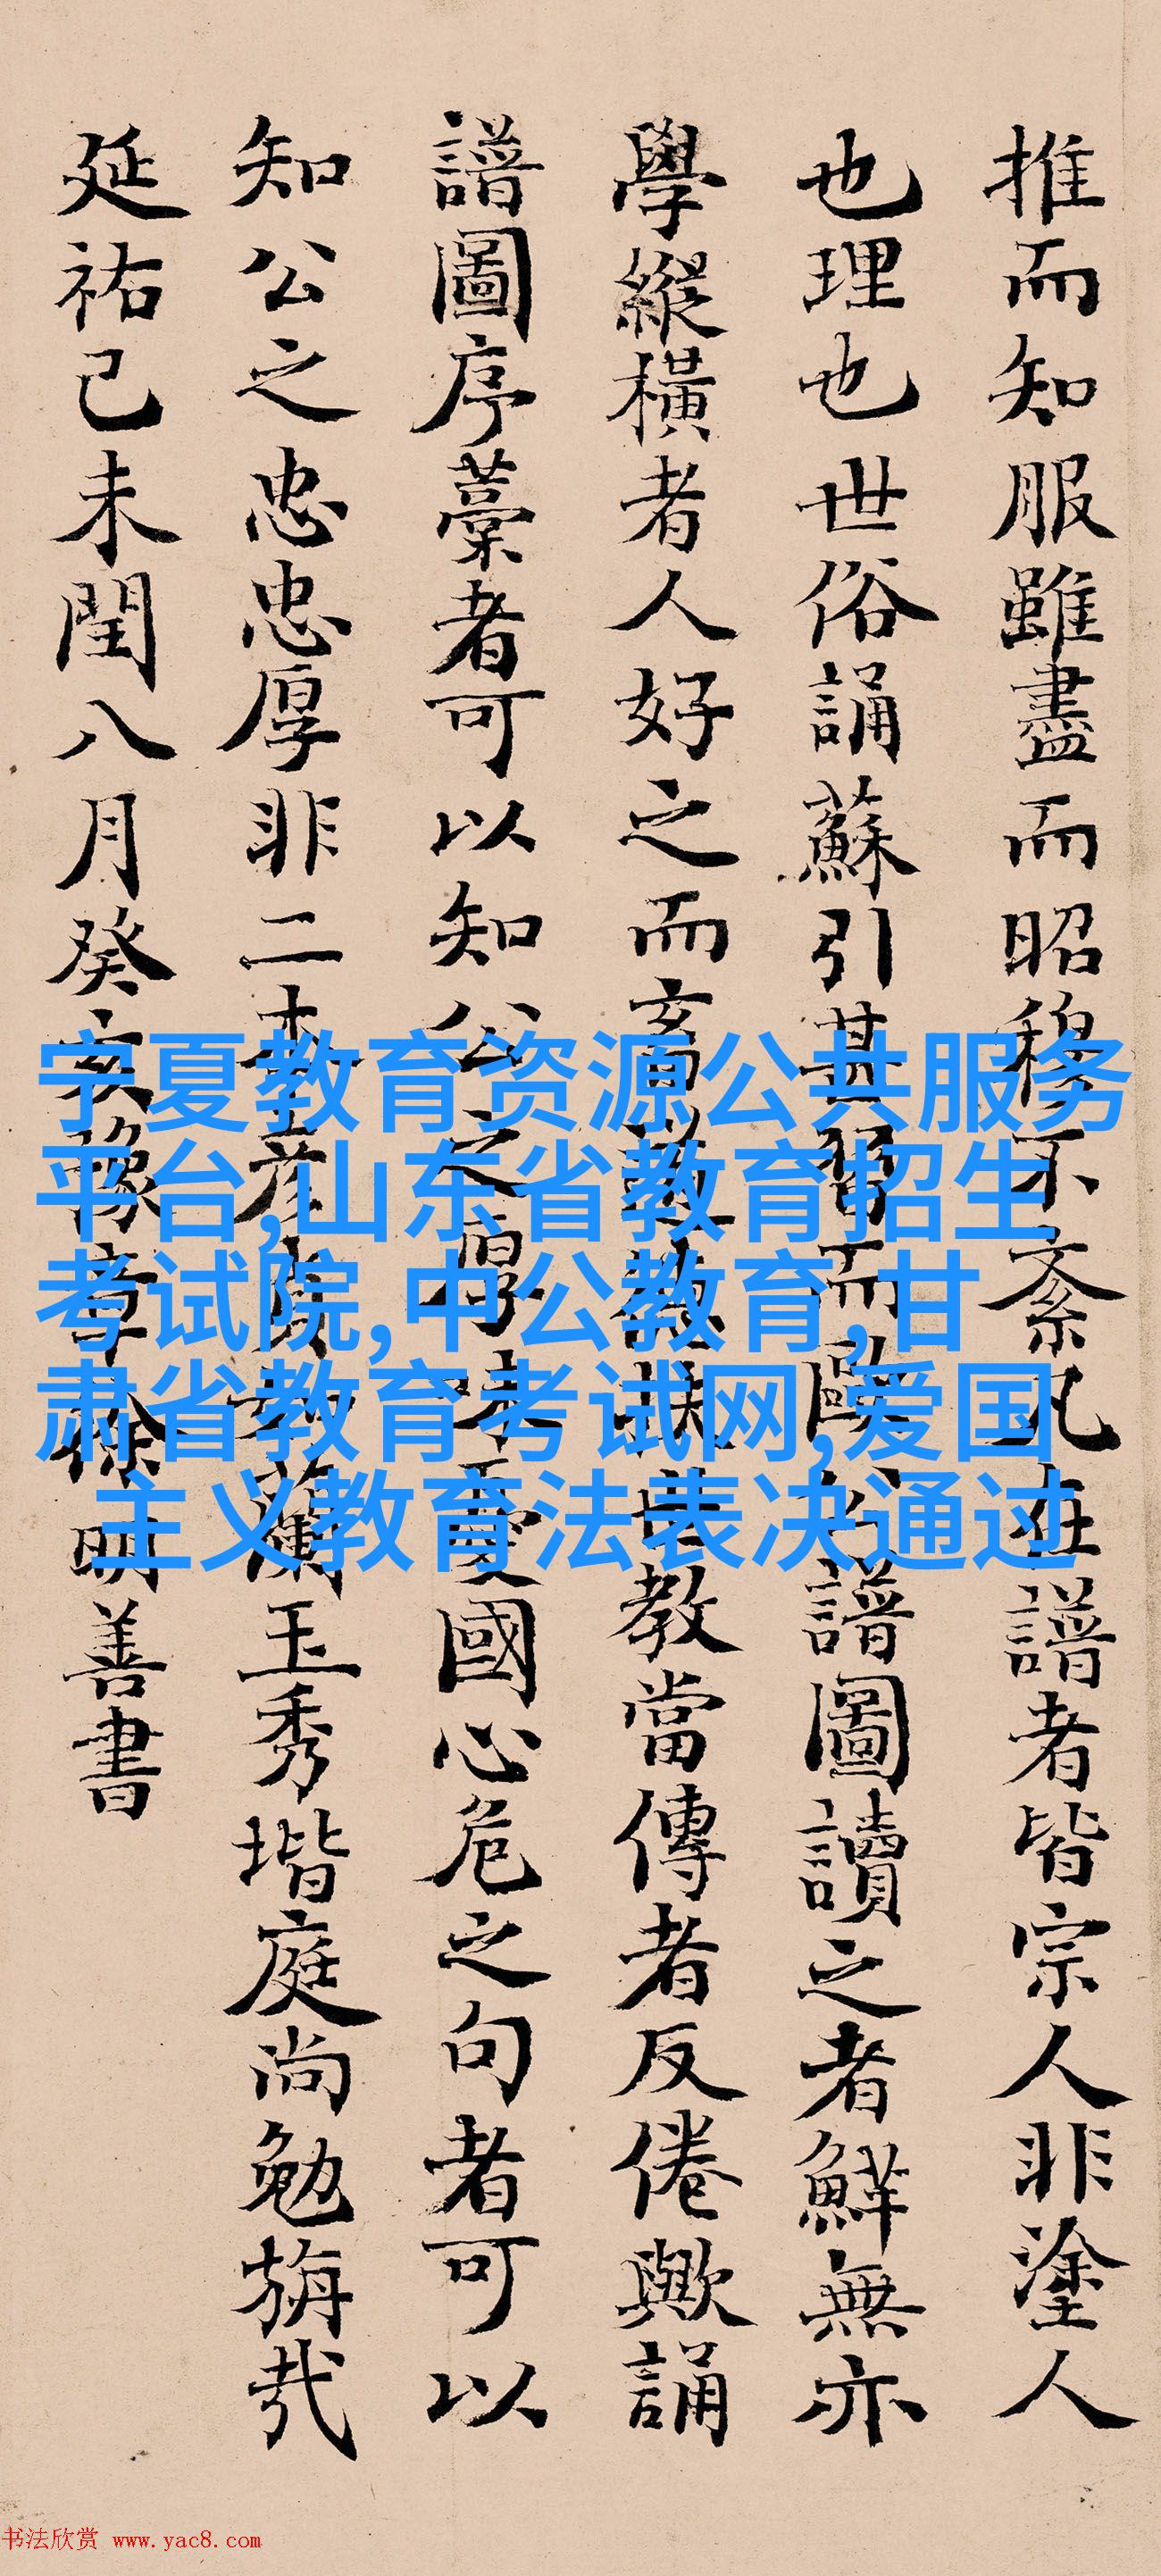 推而知服雖盡而昭穆不紊凡在譜者皆宗人非塗人
也理也世俗誦蘇引甚習而歐公譜圖讀之者鮮無亦
學縱橫者人好之而畜道德世教當傳者反倦歟誦
譜圖序藁者可以知公之得味憂國心危之句者可以
知公之忠忠厚非二本彦蘭玉秀堦庭尚勉旃哉
延祐己未閏八月癸亥豫章徐明善書
宁夏教育资源公共服务
平台,山东省教育招生
考试院,中公教育,甘
肃省教育考试网,爱国
主义教育法表决通过
书法欣赏 www.yac8.com